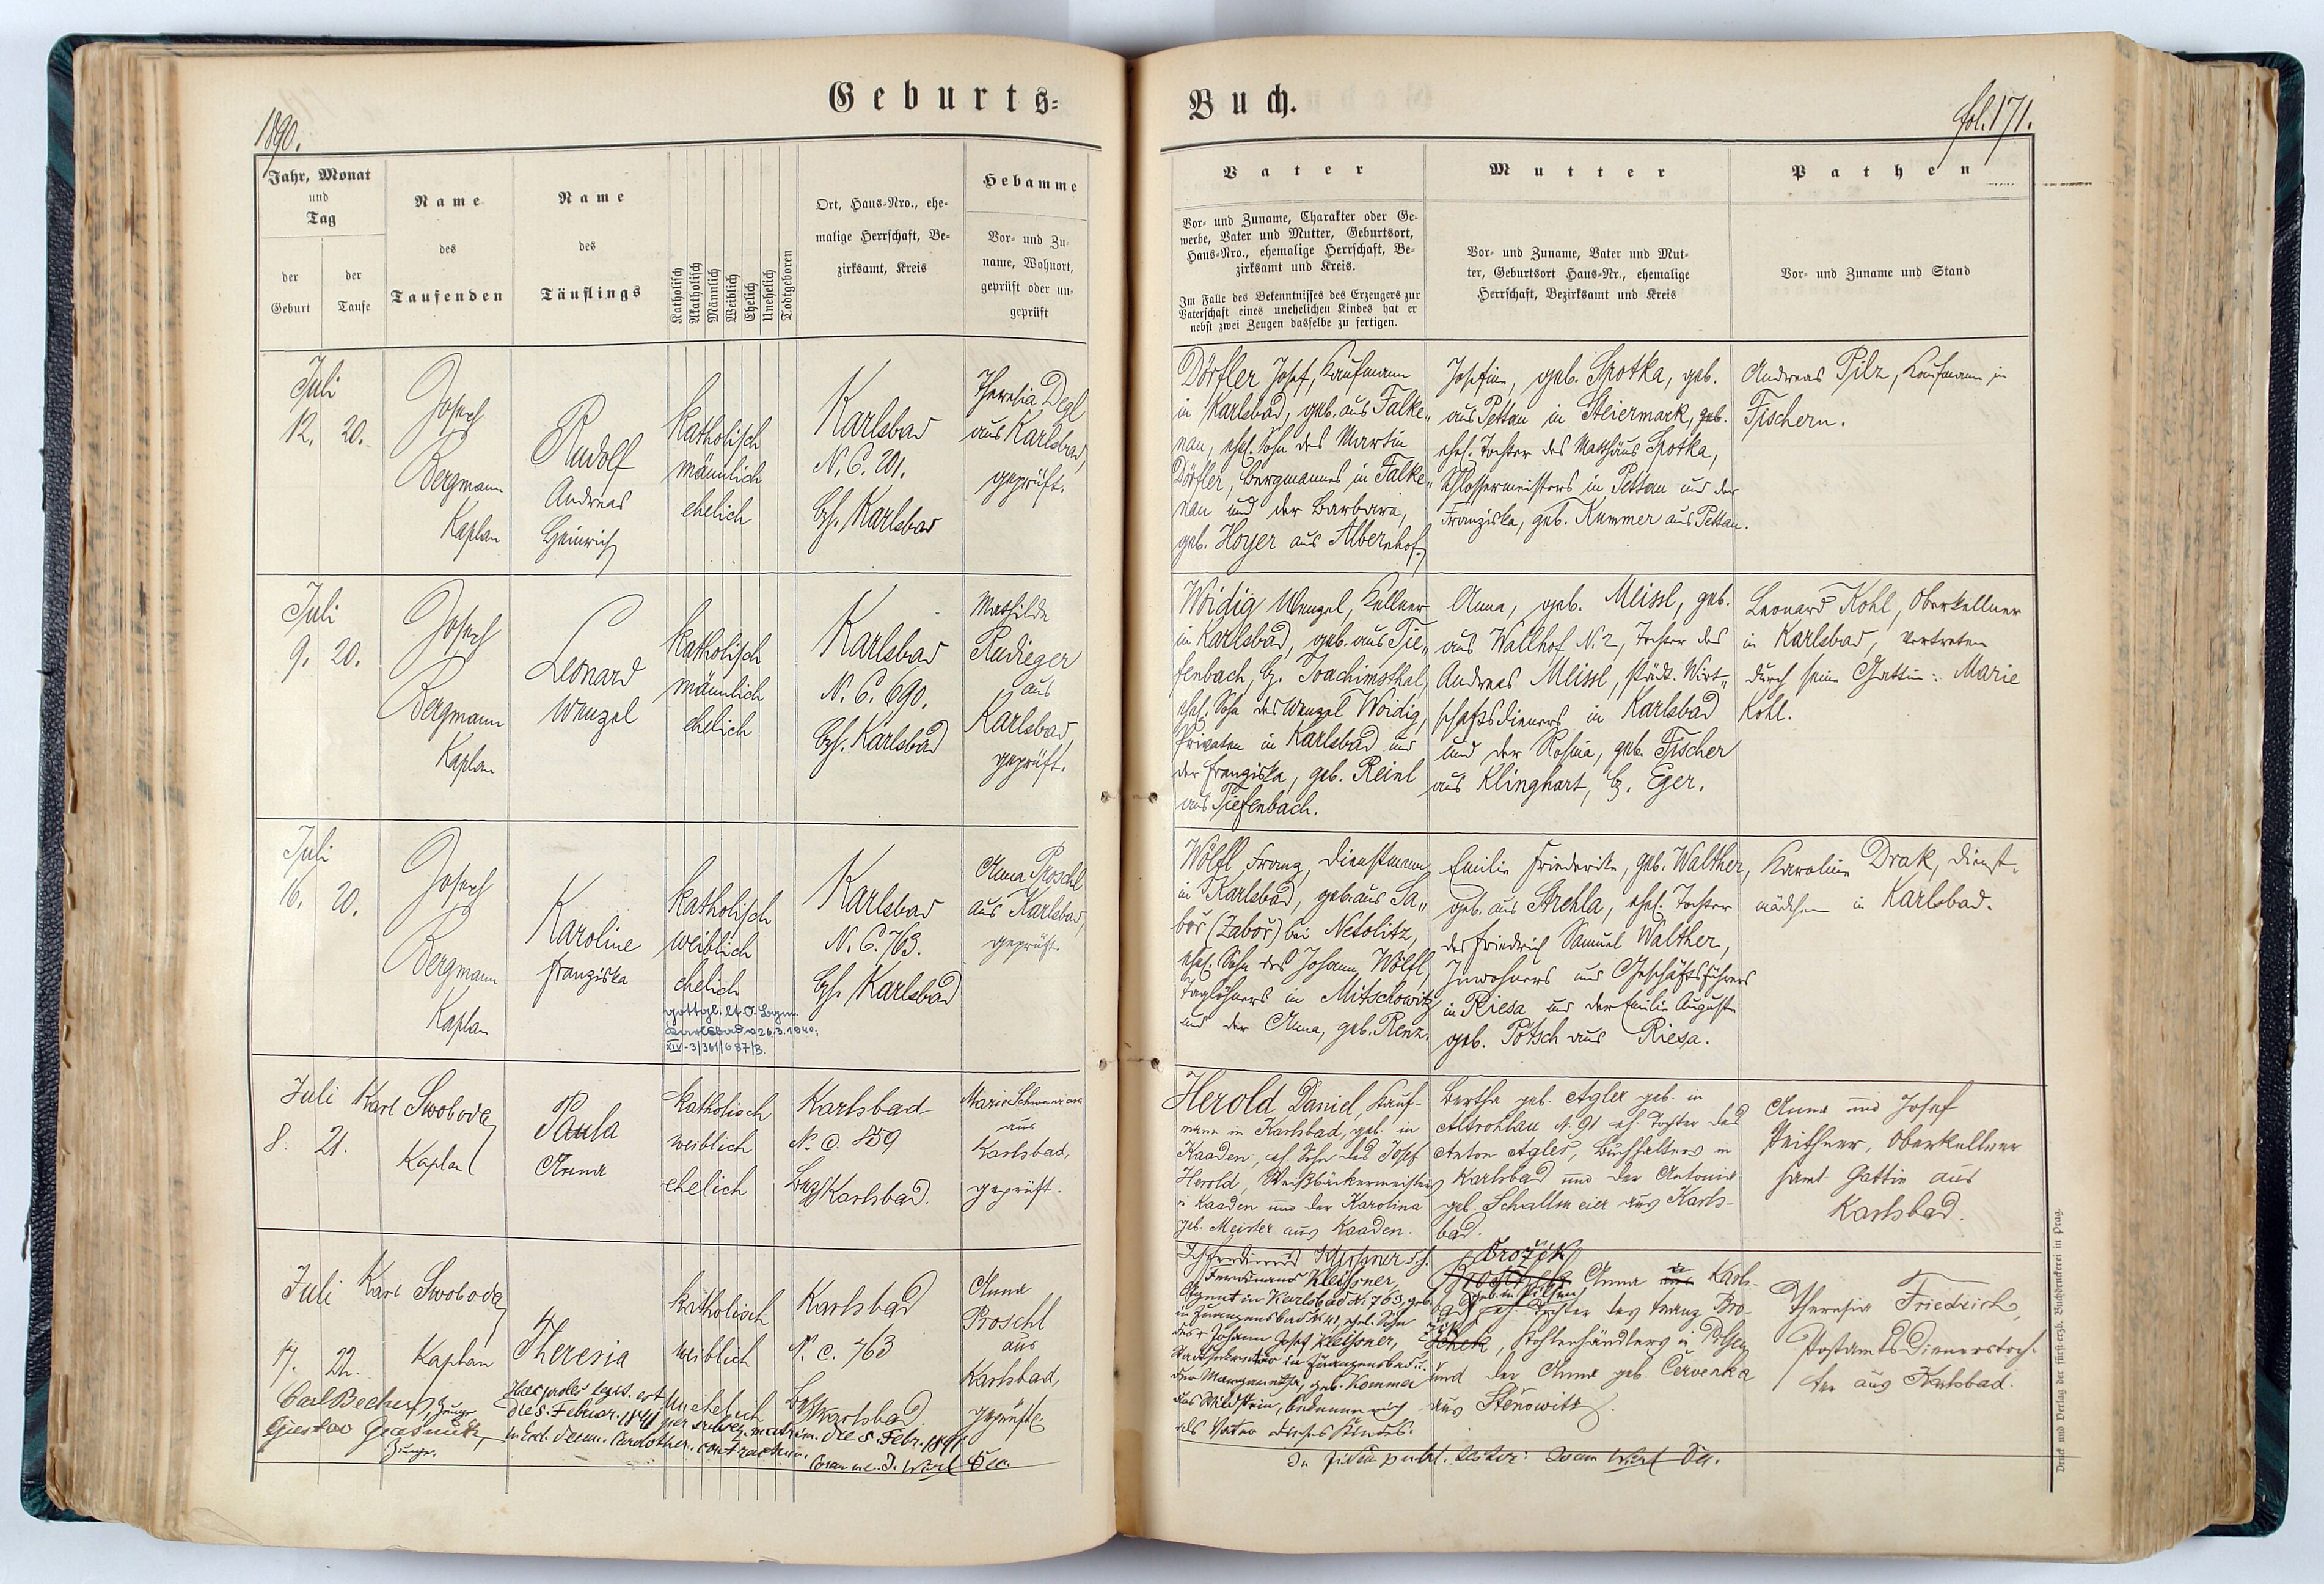 Geburts=
Buch.
1890.
fol. 171.
Jahr, Monat
und
Tag
der
Geburt
der
Taufe
Name
des
Taufenden
Name
des
Täuflings
Katholisch
Akatholisch
Männlich
Weiblich
Ehelich
Unehelich
Todtgeboren
Ort, Haus-Nro., ehe-
malige Herrschaft, Be-
zirksamt, Kreis
Hebamme
Vor- und Zu-
name, Wohnort,
geprüft oder un-
geprüft
Vater
Vor- und Zuname, Charakter oder Ge-
werbe, Vater und Mutter, Geburtsort,
Haus-Nro., ehemalige Herrschaft, Be-
zirksamt und Kreis.
Im Falle des Bekenntnisses des Erzeugers zur
Vaterschaft eines unehelichen Kindes hat er
nebst zwei Zeugen dasselbe zu fertigen.
Mutter
Vor- und Zuname, Vater und Mut-
ter, Geburtsort Haus-Nr., ehemalige
Herrschaft, Bezirksamt und Kreis
Pathen
Vor- und Zuname und Stand
Juli
12. 20.
Josef
Bergmann
Kaplan
Rudolf
Andreas
Heinrich
katholisch
männlich
ehelich
Karlsbad
N. C. 201.
Bzh. Karlsbad
Theresia Degl
aus Karlsbad,
geprüft.
Dörfler Josef, Kaufmann
in Karlsbad, geb. aus Falke„
nau, ehel. Sohn des Martin
Dörfler, Bergmannes in Falke„
nau und der Barbara,
geb. Hoyer aus Albernhof.
Josefine, geb. Spotka, geb.
aus Pettau in Steiermark, geb.
ehel. Tochter des Matthäus Spotka,
Schlossermeisters in Pettau und der
Franziska, geb. Kummer aus Pettau.
Andreas Pilz, Kaufmann in
Fischern.
Juli
9. 20.
Josef
Bergmann
Kaplan
Leonard
Wenzel
katholisch
männlich
ehelich
Karlsbad
N. C. 690.
Bzh. Karlsbad
Mathilde
Rudieger
aus
Karlsbad,
geprüft.
Woidig Wenzel, Kellner
in Karlsbad, geb. aus Tie„
fenbach, Bz. Joachimsthal,
ehel. Sohn des Wenzel Woidig,
Privaten in Karlsbad und
der Franziska, geb. Reinl
aus Tiefenbach.
Anna, geb. Meissl, geb.
aus Wallhof N. 2, Tochter des
Andreas Meissl, städt. Wirt„
schaftsdieners in Karlsbad
und der Rosina, geb. Fischer
aus Klinghart, Bz. Eger.
Leonard Kohl, Oberkellner
in Karlsbad, vertreten
durch seine Gattin: Marie
Kohl.
Juli
16. 20.
Josef
Bergmann
Kaplan
Karoline
Franziska
katholisch
weiblich
ehelich
gottgl. lt. O. Bgm.
Karlsbad v. 26.3.1940,
XIV-3/361/687/B.
Karlsbad
N. C. 763.
Bzh. Karlsbad
Anna Proschl
aus Karlsbad,
geprüft.
Wölfl Franz, Dienstmann
in Karlsbad, geb. aus Sa„
bor (Zabor) bei Netolitz,
ehel. Sohn des Johann Wölfl,
Taglöhners in Mitschowitz
und der Anna, geb. Renz.
Emilie Friederike, geb. Walther,
geb. aus Strehla, ehel. Tochter
des Friedrich Samuel Walther,
Inwohners und Geschäftsführers
in Riesa und der Emilie Auguste
geb. Potsch aus Riesa.
Karoline Drak, Dienst„
mädchen in Karlsbad.
Juli
8. 21.
Karl Swoboda
Kaplan
Paula
Anna
katholisch
weiblich
ehelich
Karlsbad
N. C. 859
Bzh Karlsbad.
Marie
aus
Karlsbad,
geprüft.
Herold Daniel, Kauf-
mann in Karlsbad, geb. in
Kaaden, eh. Sohn des Josef
Herold, Weißbäckermeisters
in Kaaden und der Karolina
geb. Meister aus Kaaden.
Bertha geb. Agler geb. in
Altrohlau N. 91 eh. Tochter des
Anton Agler, Buchhalters in
Karlsbad und der Antonia
geb. Schallmeier aus Karls-
bad.
Anna und Josef
Peithner, Oberkellner
samt Gattin aus
Karlsbad.
Juli
17. 22.
Karl Swoboda
Kaplan
Theresia
katholisch
weiblich
unehelich
Karlsbad
N. C. 763
Bzh Karlsbad
Anna
Proschl
aus
Karlsbad,
geprüft
Carl Becher, Zeuge
Gustav
Zeuge.
Haec proles legit. est
die 8. Februar. 1891 per subseq. matrim. die 8. Febr. 1891
in Eccl. decan. contractum.
Ferdinand Kleissner,
Agent in Karlsbad N. 763, geb.
in Franzensbad N. 41, ehel. Sohn
des + Johann Josef Kleissner,
in Franzensbad u.
der Margaretha, geb. Kommer
aus Wildstein, bekenne mich
als Vater dieses Kindes.
Brožik
Anna aus Karls-
bad, geb. in Pilsen, eh. Tochter des Franz Bro-
Kohlenhändlers in Pilsen
und der Anna geb. Červenka
aus Stěnowitz.
Theresia Friedrich,
Postamtsdienerstoch-
ter aus Karlsbad.
Druck und Verlag der fürst-erzb. Buchdruckerei in Prag.